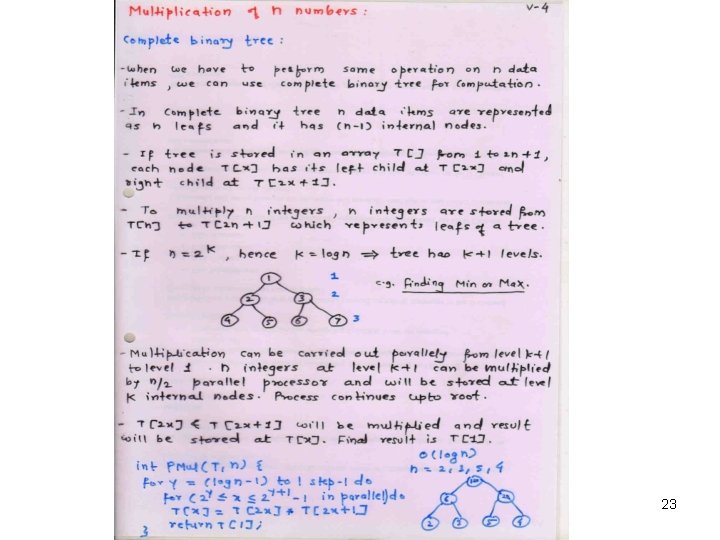 Multiplication of n numbers : V-4
Complete binary tree :
-when we have to perform same operation on n data
items , we can use complete binary tree for computation .
-In complete binary tree n data items are represented
as n leafs and it has (n-1) internal nodes.
- If tree is stored in an array T[] from 1 to 2n+1,
each node T[x] has its left child at T[2x] and
right child at T[2x+1].
- To multiply n integers , n integers are stored from
T[n] to T[2n+1] which represents leafs of a tree.
-If n=2^k , hence k=logn ⇒ tree has k+1 levels.
1 1
e.g. Finding Min or Max.
2 3 2
4 5 6 7 3
-Multiplication can be carried out parallely from level k+1
to level 1 . n integers at level k+1 can be multiplied
by n/2 parallel processor and will be stored at level
k internal nodes. Process continues upto root.
- T[2x] & T[2x+1] will be multiplied and result
will be stored at T[x]. Final result is T[1].
O(logn)
int PMul(T,n) { n = 2,3,5,4
for y = (logn-1) to 1 step-1 do
for (2^y ≤ x ≤ 2^y+1 -1 in parallel) do
T[x] = T[2x] * T[2x+1]
return T[1];
}
120
6 20
2 3 5 4
23